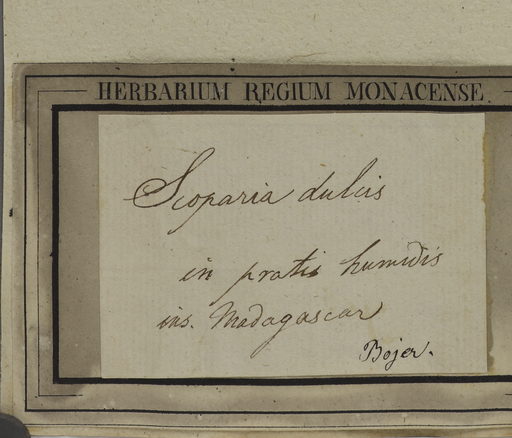 HERBARIUM REGIUM MONACENSE.
Scoparia dulcis
in pratis humidis
ins. Madagascar
Bojer.